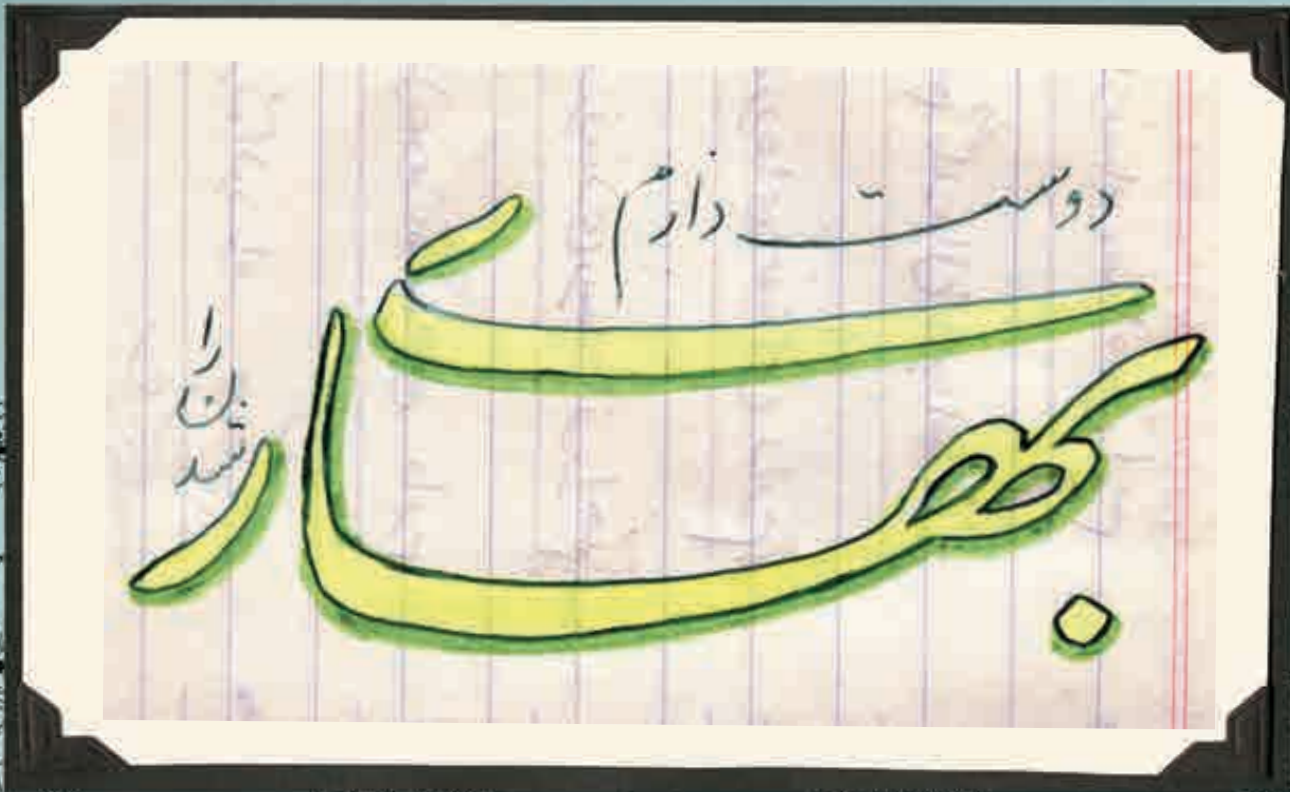 دوست دارم
بهار
را